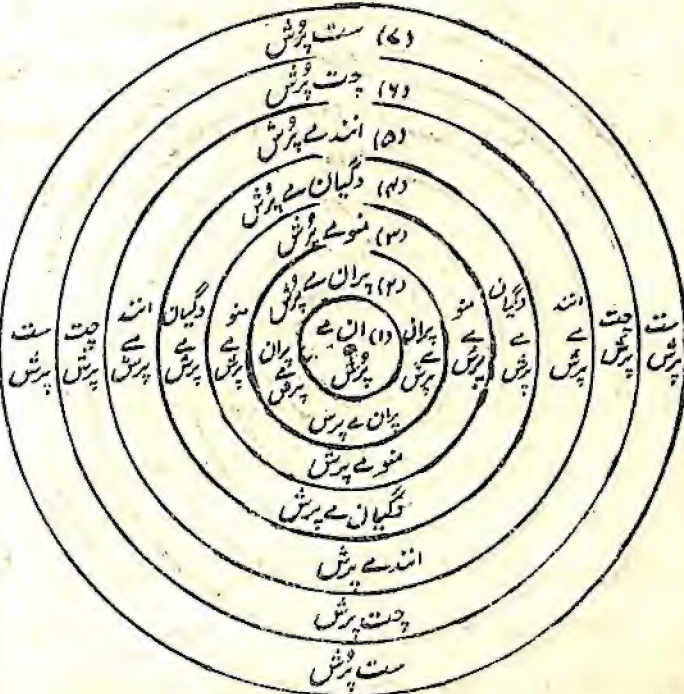 (۷) ست پُرُش
(۶) چت پُرُش
(۵) انند مے پُرُش
(۴) دگیان مے پُرُش
(۳) منو مے پُرُش
(۲) پران مے پُرُش
(۱) ان مے
پُرُش
ست
پرش
چت
پرش
انند
مے
پرش
دگیان
مے
پرش
منو
مے
پرش
پران
مے
پرش
پران
مے
پرش
منو
مے
پرش
دگیان
مے
پرش
انند
مے
پرش
چت
پرش
ست
پرش
پران مے پرش
منو مے پرش
دگیان مے پرش
انند مے پرش
چت پرش
ست پُرش